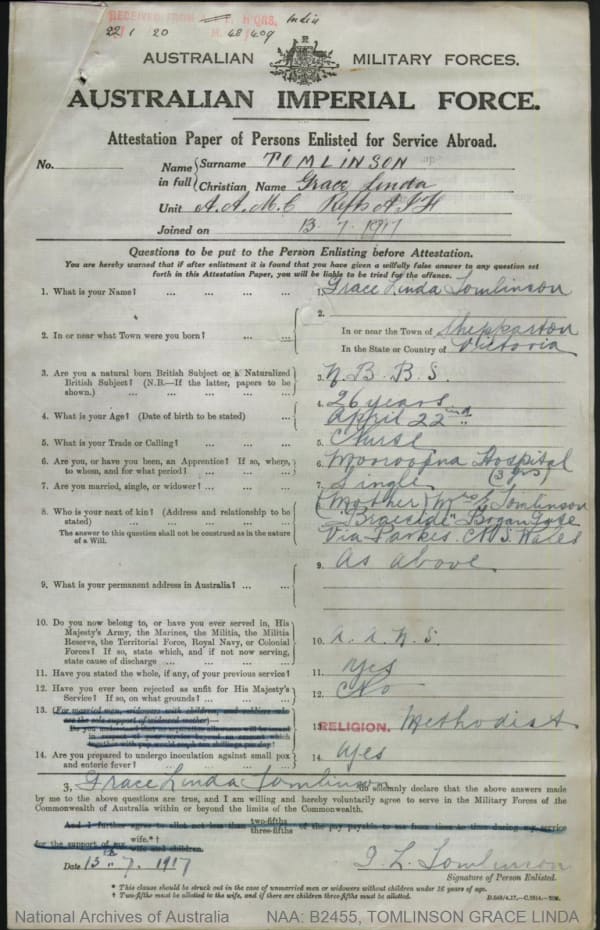 RECEIVED FROM H. QRS. India
22 1 20 48/409
AUSTRALIAN MILITARY FORCES.
AUSTRALIAN IMPERIAL FORCE.
Attestation Paper of Persons Enlisted for Service Abroad.
No. Name in full Surname TOMLINSON
Christian Name Grace Linda
Unit A.A.M.C Refts A.I.F
Joined on 13.7.1917
Questions to be put to the Person Enlisting before Attestation.
You are hereby warned that if after enlistment it is found that you have given a wilfully false answer to any question set
forth in this Attestation Paper, you will be liable to be tried for the offence.
1. What is your Name? ... ... ... ... 1. Grace Linda Tomlinson
2. In or near what Town were you born? ... ... 2. In or near the Town of Shepparton
In the State or Country of Victoria
3. Are you a natural born British Subject or a Naturalized
British Subject? (N.B.—If the latter, papers to be
shown.) ... ... ... ... ... 3. N.B.B.S.
4. What is your Age? (Date of birth to be stated) ... 4. 26 years
April 22nd
5. What is your Trade or Calling? ... ... ... 5. Nurse
6. Are you, or have you been, an Apprentice? If so, where,
to whom, and for what period? ... ... ... 6. Mooroopna Hospital
(3 yrs)
7. Are you married, single, or widower? ... ... ... 7. Single
8. Who is your next of kin? (Address and relationship to be
stated) ... ... ... ... ... 8. (Mother) Mrs E Tomlinson
"Braeside" Bogan Gate
Via Parkes. N.S. Wales
The answer to this question shall not be construed as in the nature
of a Will.
9. What is your permanent address in Australia? ... ... 9. As above
10. Do you now belong to, or have you ever served in, His
Majesty's Army, the Marines, the Militia, the Militia
Reserve, the Territorial Force, Royal Navy, or Colonial
Forces? If so, state which, and if not now serving,
state cause of discharge ... ... ... ... 10. A.A.N.S.
11. Have you stated the whole, if any, of your previous service? 11. Yes
12. Have you ever been rejected as unfit for His Majesty's
Service? If so, on what grounds? ... ... ... 12. No
13. (For married men, widowers with children, and soldiers who
are the sole support of widowed mother)—
Do you understand that no separation allowance will be issued
in respect of your service beyond an amount which
together with pay would reach ten shillings per day? 13. RELIGION. Methodist
14. Are you prepared to undergo inoculation against small pox
and enteric fever? ... ... ... ... 14. Yes
I, Grace Linda Tomlinson do solemnly declare that the above answers made
by me to the above questions are true, and I am willing and hereby voluntarily agree to serve in the Military Forces of the
Commonwealth of Australia within or beyond the limits of the Commonwealth.
And I further agree to allot not less than two-fifths three-fifths of the pay payable to me from time to time during my service
for the support of my wife.*† wife and children.
Date 13.7.1917 G. L. Tomlinson
Signature of Person Enlisted.
* This clause should be struck out in the case of unmarried men or widowers without children under 16 years of age.
† Two-fifths must be allotted to the wife, and if there are children three-fifths must be allotted.
National Archives of Australia NAA: B2455, TOMLINSON GRACE LINDA